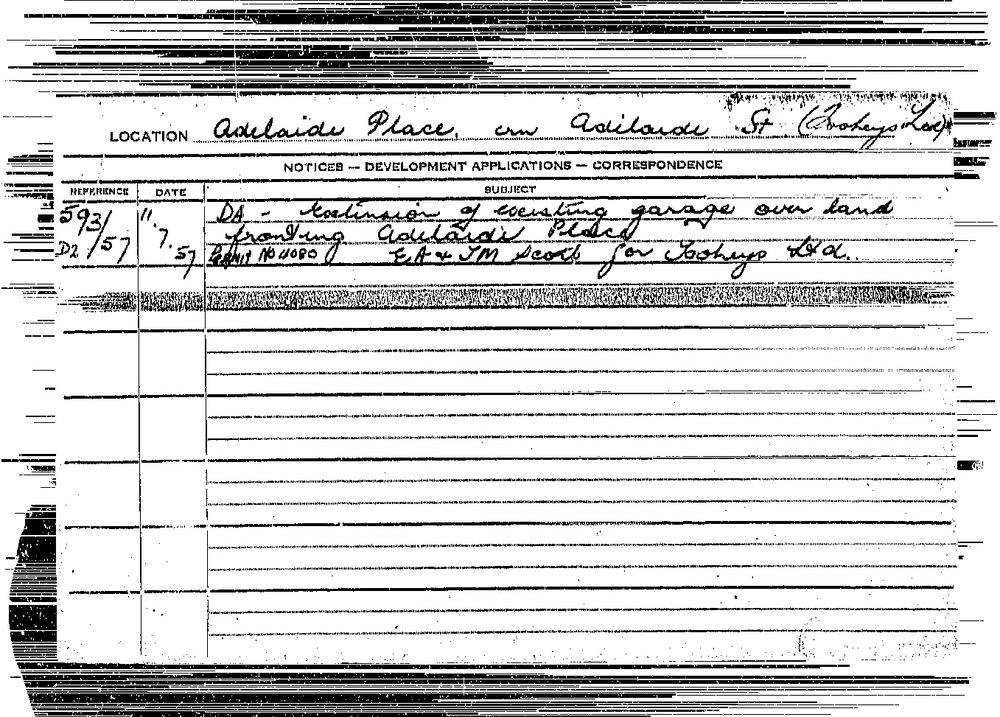 LOCATION Adelaide Place, crn Adelaide St (Tooheys Ltd)
NOTICES — DEVELOPMENT APPLICATIONS — CORRESPONDENCE
REFERENCE DATE SUBJECT
593/ 11. DA - Extension of existing garage over land
D2/57 7. fronting Adelaide Place
57 Permit No 11080 EA & TM Scott for Tooheys Ltd.